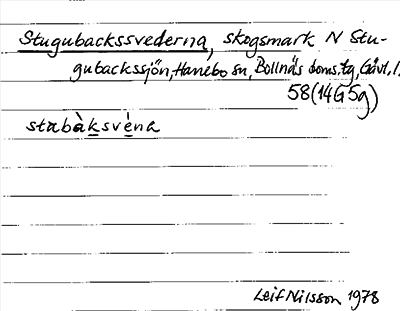 Stugubackssvederna, skogsmark N Stu-
gubackssjön, Hanebo sn, Bollnäs doms.tg, Gävl. l.
58 (14G 5g)
stɶbàksvèna
Leif Nilsson 1978